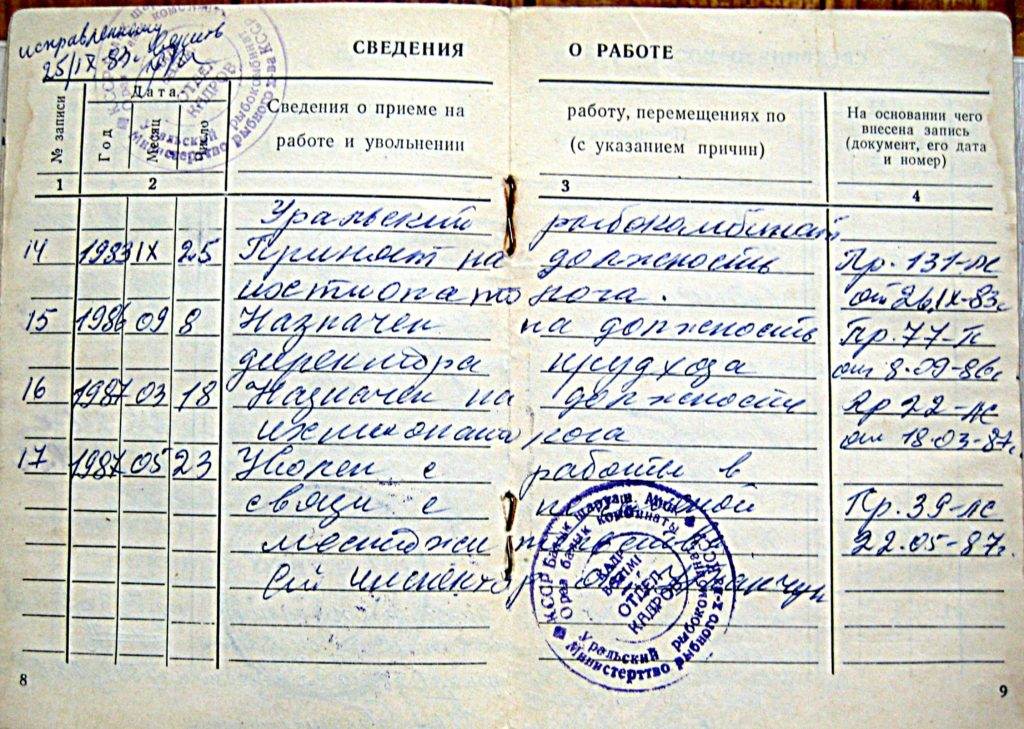 исправленному
25/IX-83г.
СВЕДЕНИЯ О РАБОТЕ
№ записи
Дата
Год
Месяц
Число
Сведения о приеме на работу, перемещениях по
работе и увольнении (с указанием причин)
На основании чего
внесена запись
(документ, его дата
и номер)
1 2 3 4
Уральский рыбокомбинат
14 1983 IX 25 Принят на должность Пр. 131-лс
ихтиопатолога. от 26.IX-83г
15 1986 09 8 Назначен на должность Пр. 77-П
директора прудхоза от 8-09-86г
16 1987 03 18 Назначен на должность Пр 22-лс
ихтиопатолога от 18.03-87г.
17 1987 05 23 Уволен с работы в
связи с Пр. 39-лс
22.05-87г.
Ст инспектор
КССР
Орал балық комбинаты
ОТДЕЛ
КАДРОВ
Уральский рыбокомбинат
Министерство рыбного хоз-ва КССР
8
9